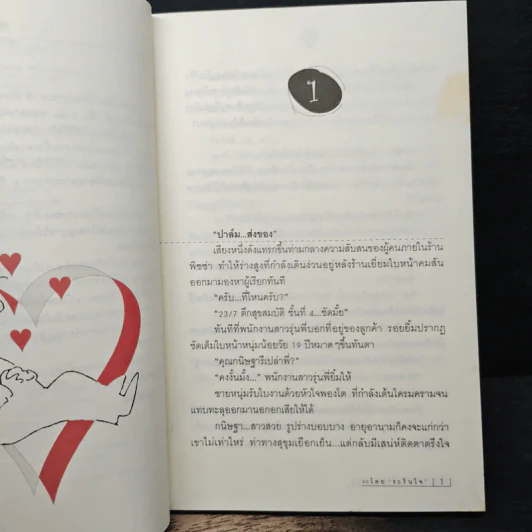 1
"ปาล์ม...ส่งของ"
เสียงหนึ่งดังแทรกขึ้นท่ามกลางความสับสนของผู้คนภายในร้าน
พิซซ่า ทำให้ร่างสูงที่กำลังเดินง่วนอยู่หลังร้านเยี่ยมใบหน้าคมสัน
ออกมามองหาผู้เรียกทันที
"ครับ...ที่ไหนครับ?"
"23/7 ตึกสุขสมบัติ ชั้นที่ 4...ชัดมั้ย"
ทันทีที่พนักงานสาวรุ่นพี่บอกที่อยู่ของลูกค้า รอยยิ้มปรากฏ
ชัดเต็มใบหน้าหนุ่มน้อยวัย 19 ปีหมาดๆขึ้นทันตา
"คุณกนิษฐารึเปล่าพี่?"
"คงงั้นมั้ง..." พนักงานสาวรุ่นพี่ยิ้มให้
ชายหนุ่มรับใบงานด้วยหัวใจพองโต ที่กำลังเต้นโครมครามจน
แทบทะลุออกมานอกอกเสียให้ได้
กนิษฐา...สาวสวย รูปร่างบอบบาง อายุอานามก็คงจะแก่กว่า
เขาไม่เท่าไหร่ ท่าทางสุขุมเยือกเย็น...แต่กลับมีเสน่ห์ติดตาตรึงใจ
1